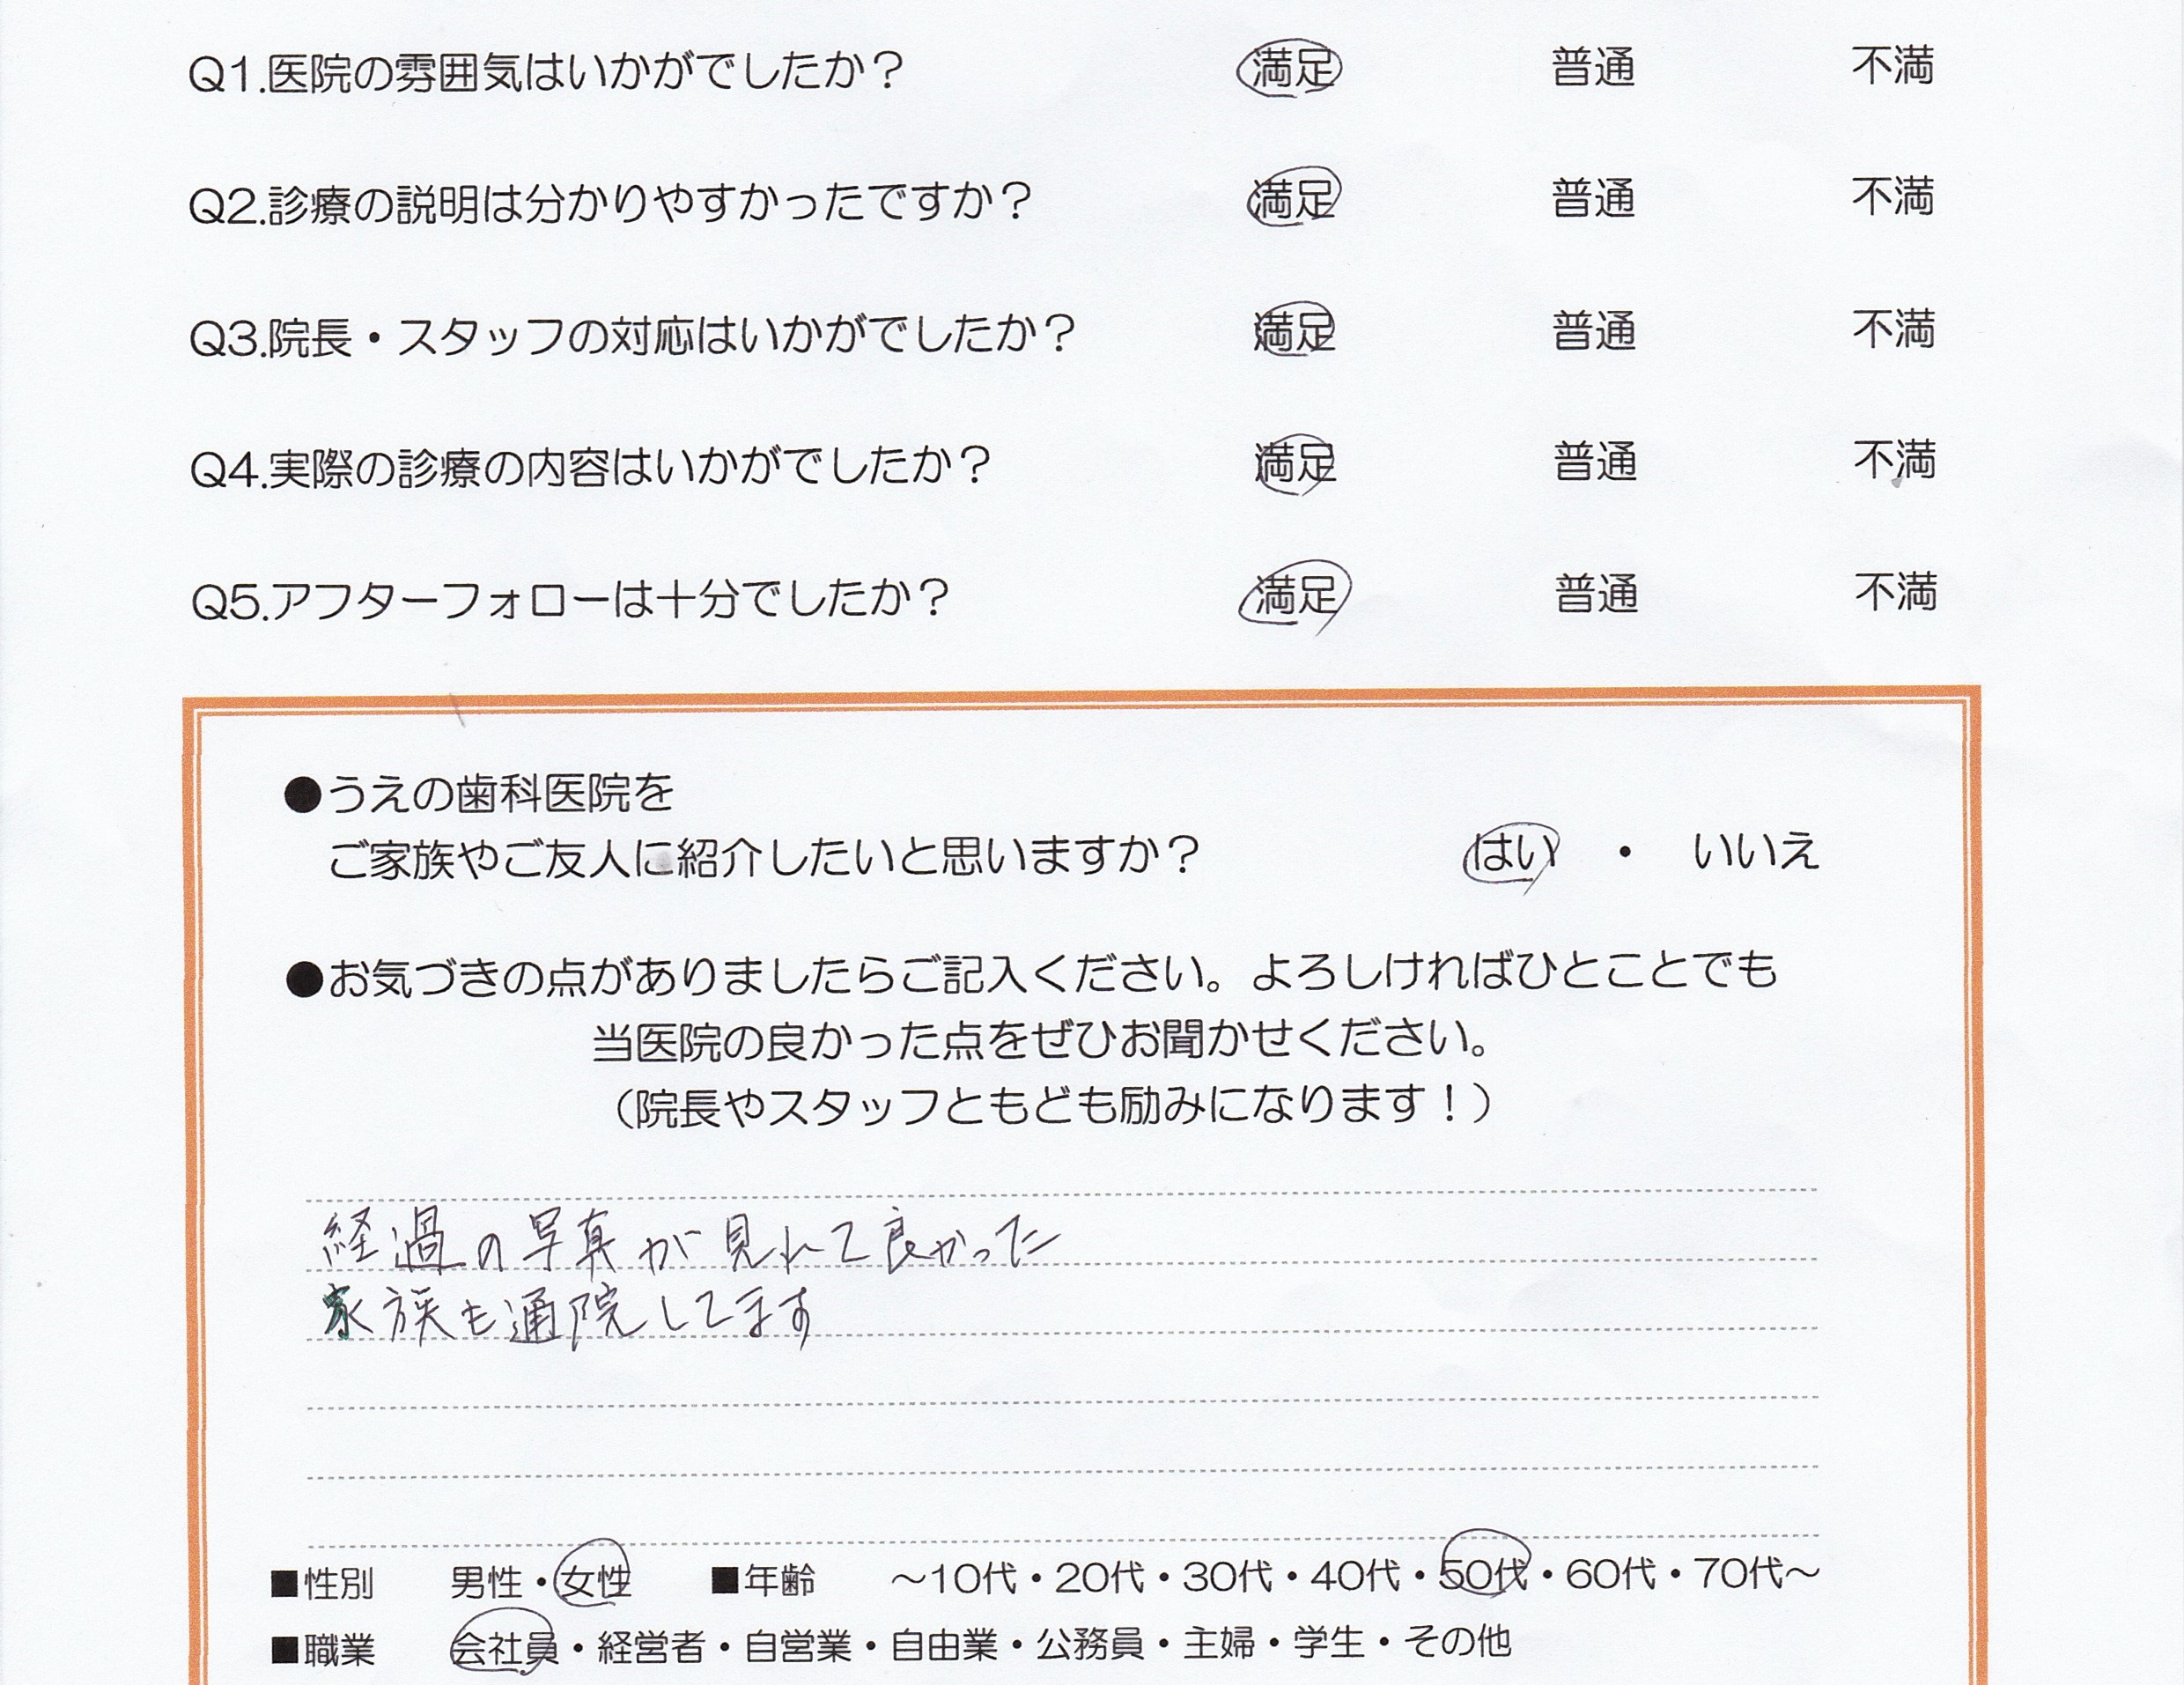 Q1.医院の雰囲気はいかがでしたか？ 満足 普通 不満
Q2.診療の説明は分かりやすかったですか？ 満足 普通 不満
Q3.院長・スタッフの対応はいかがでしたか？ 満足 普通 不満
Q4.実際の診療の内容はいかがでしたか？ 満足 普通 不満
Q5.アフターフォローは十分でしたか？ 満足 普通 不満
●うえの歯科医院を
ご家族やご友人に紹介したいと思いますか？ はい ・ いいえ
●お気づきの点がありましたらご記入ください。よろしければひとことでも
当医院の良かった点をぜひお聞かせください。
（院長やスタッフともども励みになります！）
経過の写真が見れて良かった
家族も通院してます
■性別 男性・女性 ■年齢 ～10代・20代・30代・40代・50代・60代・70代～
■職業 会社員・経営者・自営業・自由業・公務員・主婦・学生・その他